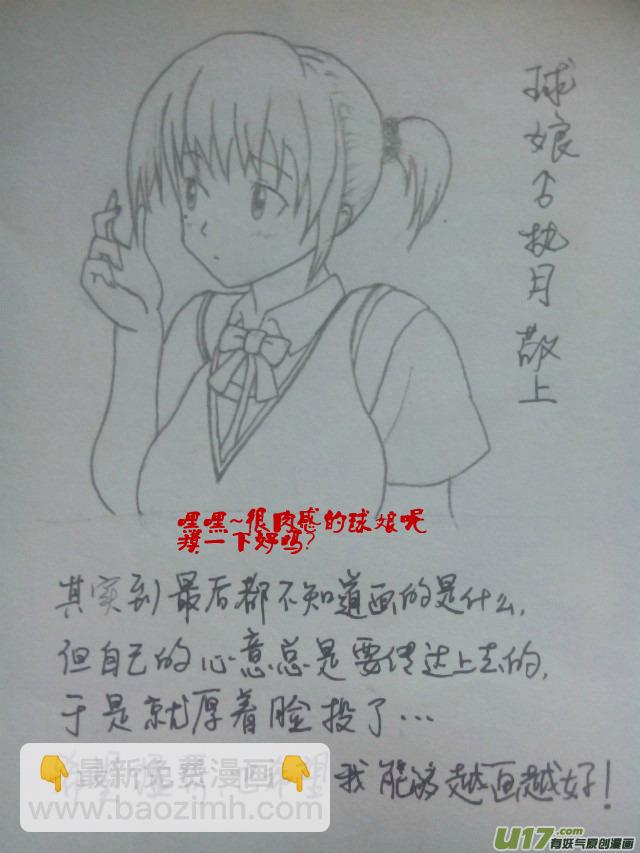 球娘々执月 敬上
嘿嘿~很肉感的球娘呢
摸一下好吗?
其实到最后都不知道画的是什么,
但自己的心意总是要传达上去的,
于是就厚着脸投了…
我能够越画越好!
👇最新免费漫画👇
www.baozimh.com
U17.com
有妖气原创漫画